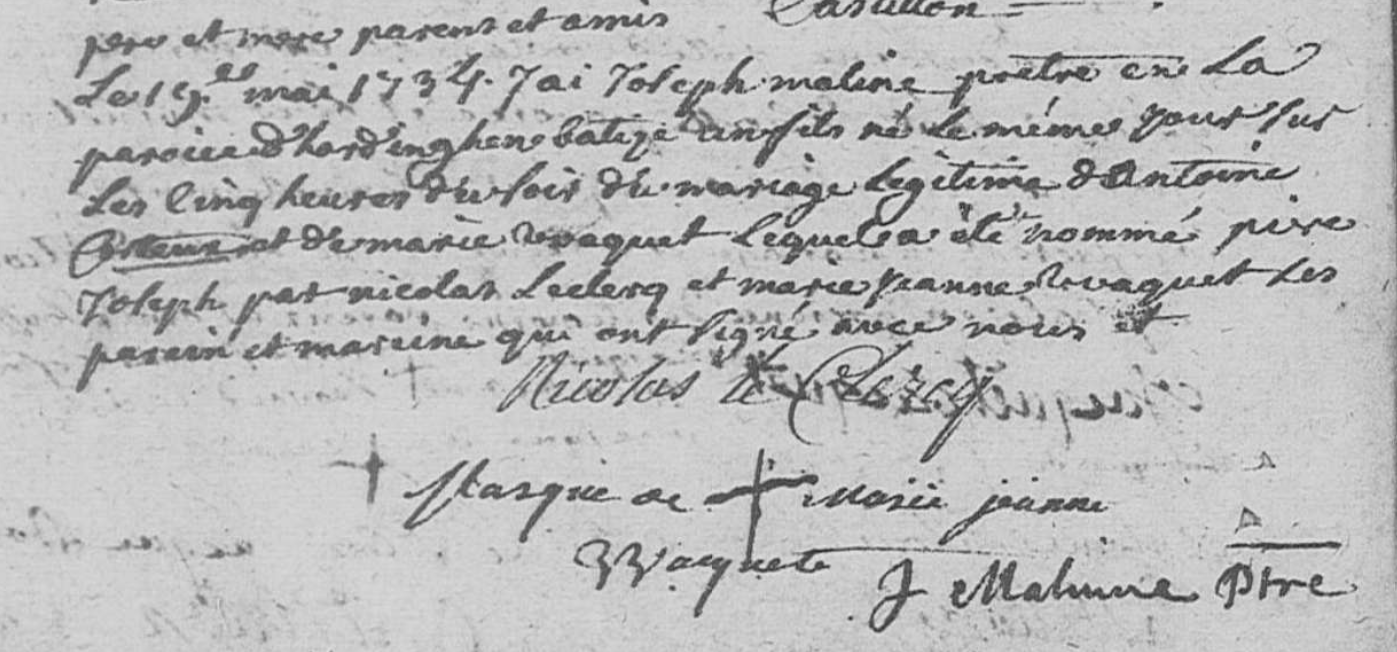 pere et mere parent et amis
Le 19.e mai 1734. J ai Joseph maline prêtre en La
paroice d'hardinghen batizé un fils né le même jour sur
Les cinq heures du soir du mariage Legitime d'Antoine
et de marie wvaquet Lequel a été nommé piere
Joseph par nicolas Leclercq et marie jeanne wvaquet Les
parein et mareine qui ont signé avec nous et
Nicolas le Clercq
Marque de Marie jeanne
Wacquet
J Maline Ptre